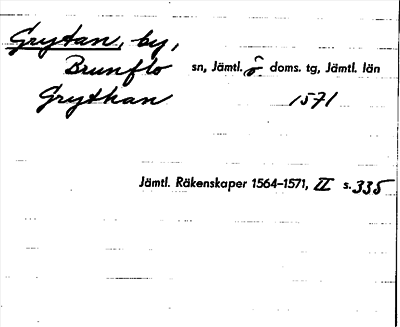 Grytan, by,
Brunflo sn, Jämtl. ö doms. tg, Jämtl. län
Grythan 1571
Jämtl. Räkenskaper 1564–1571, II s. 335